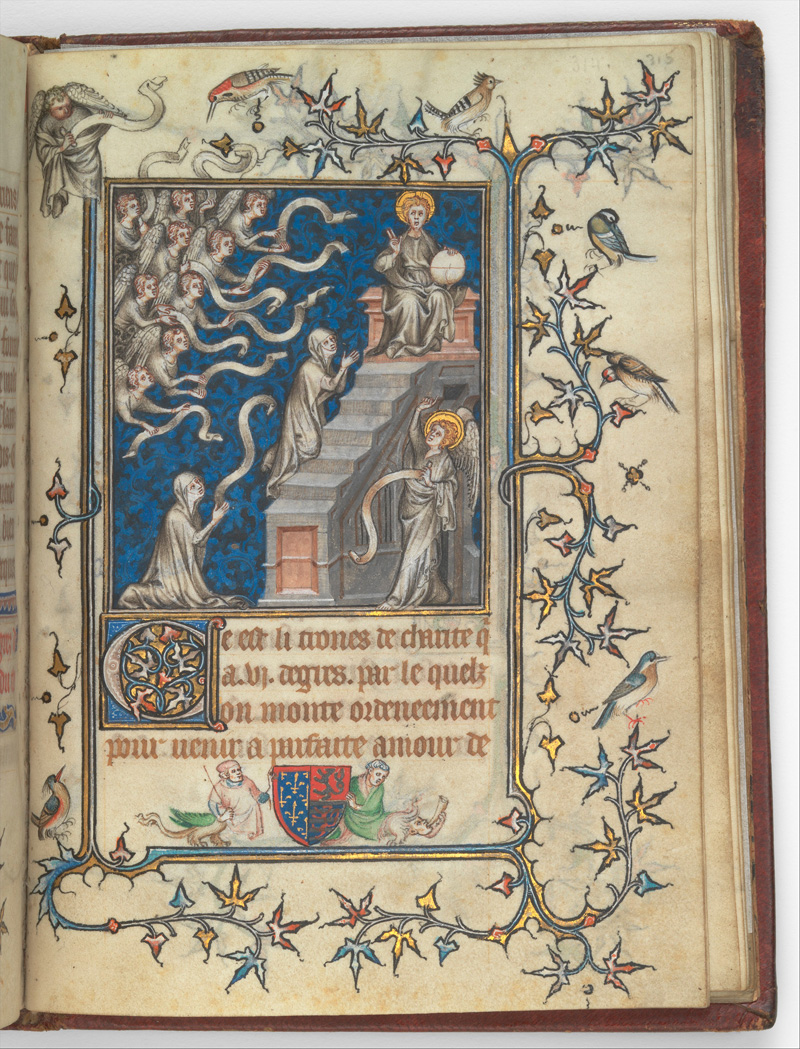 315
Ce est li trones de charite q̄
a .vi. degres. par le quelz
on monte ordeneement
pour uenir a parfaite amour de